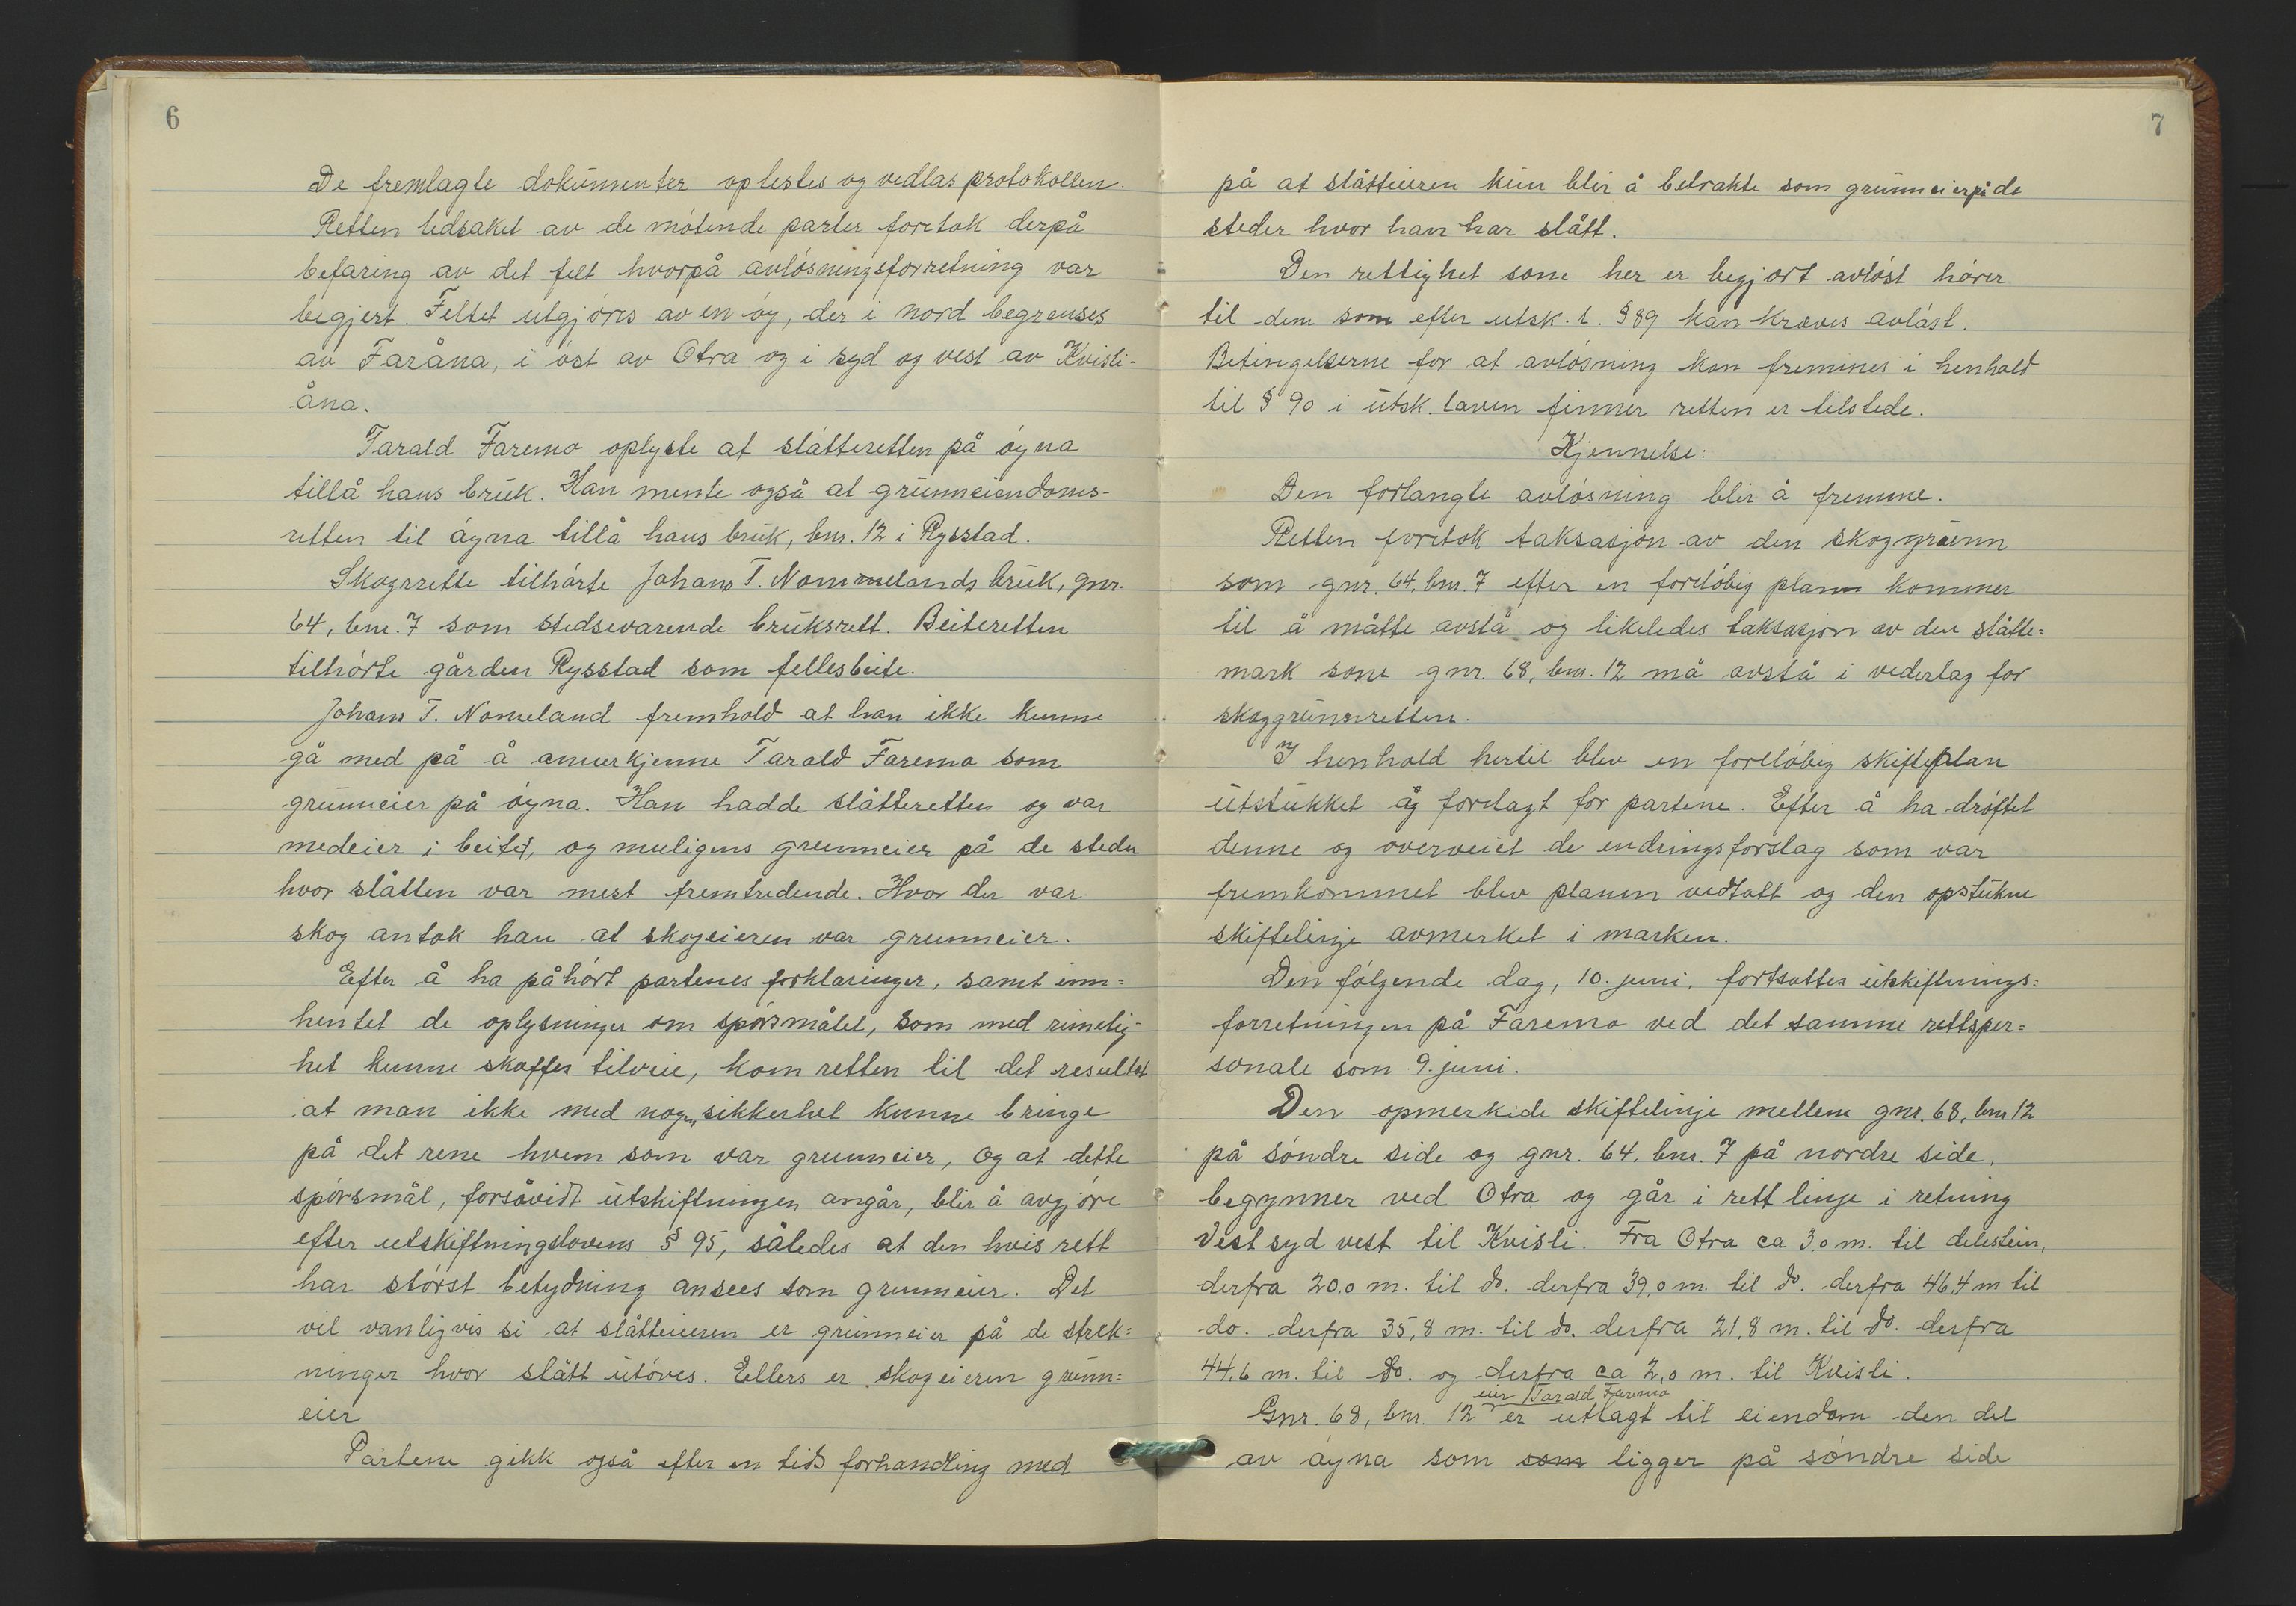 6
De fremlagte dokumenter oplestes og vedlas protokollen.
Retten ledsaket av de møtende parter foretok derpå
befaring av det felt hvorpå avløsningsforretning var
begjert. Feltet utgjøres av en øy, der i nord begrenses
av Faråna, i øst av Otra og i syd og vest av Kvisli-
åna.
Tarald Faremo oplyste at slåtteretten på øyna
tillå hans bruk. Han mente også at grunneiendoms-
retten til øyna tillå hans bruk, bnr. 12 i Rysstad.
Skogrette tilhørte Johans T. Nommelands bruk, gnr.
64, bnr. 7 som stedsevarende bruksrett. Beiteretten
tilhørte gården Rysstad som fellesbeite.
Johans T. Nomeland fremhold at han ikke kunne
gå med på å annerkjenne Tarald Faremo som
grunneier på øyna. Han hadde slåtteretten og var
medeier i beitet, og muligens grunneier på de steder
hvor slåtten var mest fremtredende. Hvor der var
skog antok han at skogeieren var grunneier.
Efter å ha påhørt partenes forklaringer, samt inn=
hentet de oplysninger om spørsmålet, som med rimelig-
het kunne skaffes tilveie, kom retten til det resultat
at man ikke med nogen sikkerhet kunne bringe
på det rene hvem som var grunneier, og at dette
spørsmål, forsåvidt utskiftningen angår, blir å avgjøre
efter utskiftningslovens § 95, således at den hvis rett
har størst betydning ansees som grunneier. Det
vil vanligvis si at slåtteieren er grunneier på de strek=
ninger hvor slått utøves. Ellers er skogeieren grunn=
eier
Partene gikk også efter en tids forhandling med
7
på at slåtteieren kun blir å betrakte som grunneier på de
steder hvor han har slått.
Den rettighet som her er begjørt avløst hører
til dem som efter utsk. l. § 89 kan kræves avløst.
Betingelserne for at avløsning kan fremmes i henhold
til § 90 i utsk. loven finner retten er tilstede.
Kjennelse:
Den forlangte avløsning blir å fremme.
Retten foretok taksasjon av den skoggrunn
som gnr. 64, bnr. 7 efter en foreløbig plan kommer
til å måtte avstå og likeledes taksasjon av den slåtte=
mark som gnr. 68, bnr. 12 må avstå i vederlag for
skoggrunnretten.
I henhold hertil blev en foreløbig skifteplan
utstukket og forelagt for partene. Efter å ha drøftet
denne og overveiet de endringsforslag som var
fremkommet blev planen vedtatt og den opstukne
skiftelinje avmerket i marken.
Den følgende dag, 10. juni, fortsattes utskiftnings=
forretningen på Faremo ved det samme rettsper=
sonale som 9. juni.
Den opmerkede skiftelinje mellem gnr. 68, bnr 12
på søndre side og gnr. 64. bnr. 7 på nordre side,
begynner ved Otra og går i rett linje i retning
Vest syd vest til Kvisli. Fra Otra ca 3,0 m. til delestein,
derfra 20,0 m. til do. derfra 39,0 m. til do. derfra 46,4 m til
do. derfra 35,8 m. til do. derfra 21,8 m. til do. derfra
44,6 m. til do. og derfra ca 2,0 m. til Kvisli.
eier Tarald Faremo
Gnr. 68, bnr. 12 er utlagt til eiendom den del
av øyna som som ligger på søndre side